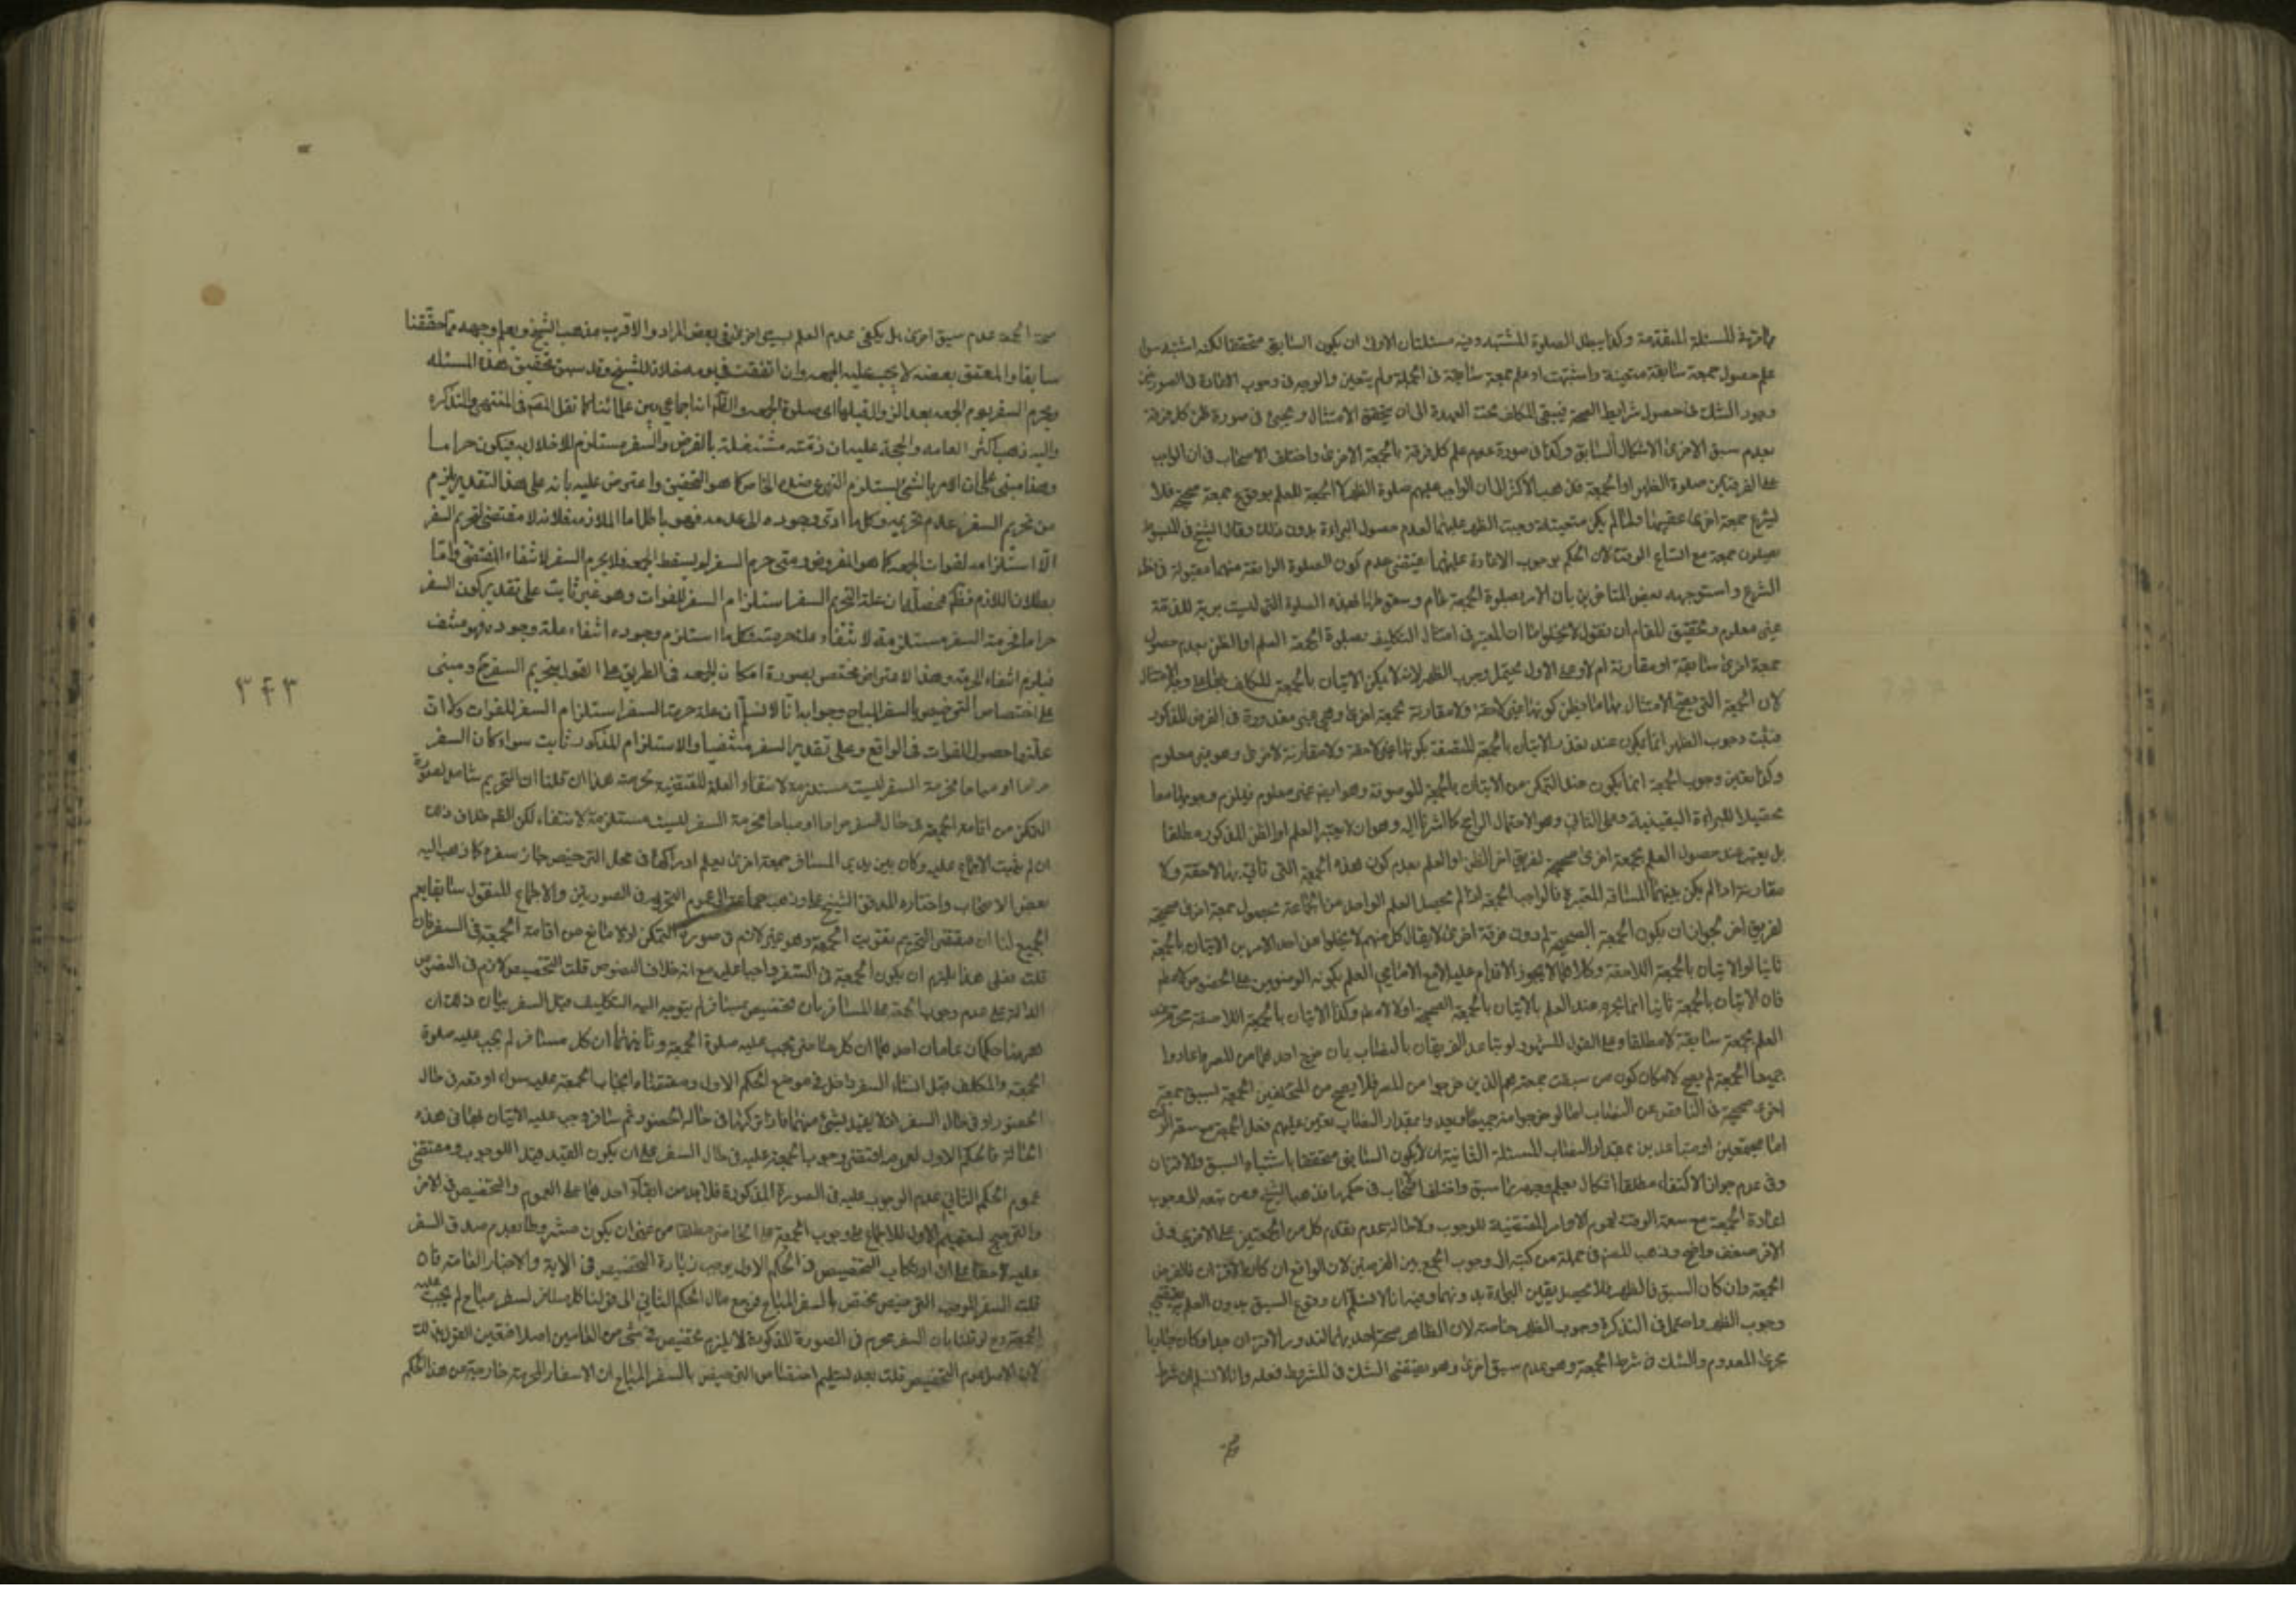 في المسئلة المتقدمة وكذا يبطل الصلوة المشتبه وفيه مسئلتان الاولى ان يكون السابق متحققا لكنه اشتبه سوا
علم حصول جمعة سابقة متعينة واشتبهت او علم جمعة سابقة في الجملة ولم يتعين والوجه في وجوب الاعادة في الصورتين
الشك في حصول شرايط الصحة فيبقى المكلف تحت العهدة الى ان يتحقق الامتثال ويجئ في صورة ظن كل فرقة
بعدم سبق الاخرى الاشكال السابق وكذا في صورة عدم علم كل فرقة بالجمعة الاخرى واختلف الاصحاب في ان الواجب
على الفريقين صلوة الظهر او الجمعة فذهب الاكثر الى ان الواجب عليهم صلوة الظهر لا الجمعة للعلم بوقوع جمعة صحيحة فلا
يشرع جمعة اخرى عقيبها ولما لم يكن متعينة وجبت الظهر عليهما لعدم حصول البراءة بدون ذلك وقال الشيخ في المبسوط
يصلون جمعة مع اتساع الوقت لان الحكم بوجوب الاعادة عليهما يقتضي عدم كون الصلوة الواقعة منهما معتبرة في نظر
الشرع واستوجهه بعض المتاخرين بان الامر بصلوة الجمعة عام وسقوطها بهذه الصلوة التي ليست برية للذمة
غير معلوم وتحقيق المقام ان نقول لا يخلو اما ان المعتبر في امتثال التكليف بصلوة الجمعة العلم او الظن بعدم حصول
جمعة اخرى سابقة او مقارنة ام لا وعلى الاول يحتمل وجوب الظهر لانه لا يمكن الاتيان بالجمعة للمكلف
لان الجمعة التي يصح الامتثال بها ما يظن كونها غير لاحقة ولا مقارنة لجمعة اخرى وهي غير مقدورة في الفرض المذكور
فثبت وجوب الظهر انما يكون عند تعذر الاتيان بالجمعة المتصفة بكونها غير لاحقة ولا مقارنة لاخرى وهو غير معلوم
وكذا تعين وجوب الجمعة انما يكون عند التمكن من الاتيان بالجمعة الموصوفة وهو ايضا غير معلوم فيلزم وجوبهما معا
تحصيلا للبراءة اليقينية وعلى الثاني وهو الاحتمال الراجح كما اشرنا اليه وهو ان لا يعتبر العلم او الظن المذكور مطلقا
بل يعتبر عند حصول العلم بجمعة اخرى صحيحة لفريق اخر الظن او العلم بعدم كون هذه الجمعة التي تاتي بها لاحقة ولا
مقارنة اذا لم يكن بينهما المسافة المعتبرة فالواجب الجمعة اذا لم يحصل العلم لواحد من الجماعة بحصول جمعة اخرى صحيحة
لفريق اخر لجواز ان يكون الجمعة الصحيحة لم دون فرقة اخرى لا يقال كل منهم لا يخلوا من احد الامرين الاتيان بالجمعة
ثانيا او الاتيان بالجمعة اللاحقة وكلاهما لا يجوز الاقدام عليه
فان الاتيان بالجمعة ثانيا انما يحرم عند العلم بالاتيان بالجمعة الصحيحة اولا لا مطلقا وكذا الاتيان بالجمعة اللاحقة
العلم بجمعة سابقة لا مطلقا وعلى القول المشهور لو تباعد الفريقان بالنصاب بان خرج احدهما من المصر واعادوا
جميعا الجمعة لم يصح لامكان كون من سبقت جمعته هم الذين خرجوا من المصر فلا يصح من المتخلفين الجمعة لسبق جمعة
اخرى صحيحة في الناقص عن النصاب اما لو خرجوا منه جميعا وبعدوا بمقدار النصاب تعين عليهم فعل الجمعة مع سعة الوقت
اما مجتمعين او متباعدين بمقدار النصاب المسئلة الثانية ان لا يكون السابق متحققا باشتباه السبق والاقتران
وفي عدم جواز الاكتفاء مطلقا اشكال يعلم وجهه مما سبق واختلف الاصحاب في حكمها فذهب الشيخ ومن تبعه الى وجوب
اعادة الجمعة مع سعة الوقت لعموم الاوامر المقتضية للوجوب ولاصالة عدم تقدم كل من الجمعتين على الاخرى وفي
الاخر ضعف واضح وذهب المصنف في جملة من كتبه الى وجوب الجمع بين الفرضين لان الواقع ان كان الاقتران فالفرض
الجمعة وان كان السبق فالظهر فلا يحصل يقين البراءة بدونهما وفيه انا لا نسلم ان وقوع السبق بدون العلم به يقتضي
وجوب الظهر واحتمل في التذكرة وجوب الظهر خاصة لان الظاهر صحة احديهما لندور الاقتران جدا فكان جاريا
مجرى المعدوم والشك في شرط الجمعة وهو عدم سبق اخرى وهو يقتضي الشك في المشروط فعله وانا لا نسلم ان شرط
صحة الجمعة عدم سبق اخرى بل يكفي عدم العلم بسبق اخرى في بعض المراد والاقرب مذهب الشيخ ويعلم وجهه مما حققنا
سابقا والمعتق بعضه لا يجب عليه الجمعه وان اتفقت في يومه خلافا للشيخ وقد سبق تحقيق هذه المسئله
ويحرم السفر يوم الجمعه بعد الزوال قبلها اي صلوة الجمعه والظ انه اجماعي بين علمائنا كما نقل المصنف في المنتهى والتذكره
واليه ذهب اكثر العامه والحجة عليه ان ذمته مشتغلة بالفرض والسفر مستلزم للاخلال به فيكون حراما
وهذا مبنى على ان الامر بالشئ يستلزم النهى عن ضده الخاص كما هو التحقيق واعترض عليه بانه على هذا التقدير يلزم
من تحريم السفر عدم تحريمه وكل ما ادى وجوده الى عدمه فهو باطل اما الملازمة فلانه لا مقتضى لتحريم السفر
الا استلزامه لفوات الجمعه كما هو المفروض ومتى حرم السفر لم يسقط الجمعه فلا يحرم السفر لانتفاء المقتضى واما
بطلان اللازم فظ محصله ان علة التحريم السفر استلزام السفر للفوات وهو غير ثابت على تقدير كون السفر
حراما فحرمة السفر مستلزمة لانتفاء علة حرمته فكل ما استلزم وجوده انتفاء علة وجوده فهو منتف
فيلزم انتفاء الحرمة وهذا الاعتراض مختص بصورة امكان الجمعه في الطريق على القول بتحريم السفر ح ومبنى
على اختصاص الترخيص بالسفر المباح وجوابه انا لا نسلم ان علة حرمة السفر استلزام السفر للفوات
علتها حصول الفوات في الواقع وعلى تقدير السفر منتفيا والاستلزام المذكور ثابت سواء كان السفر
حراما او مباحا فحرمة السفر ليست مستلزمة لانتفاء العلة المقتضية لحرمته هذا ان قلنا ان التحريم شامل لصورة
التمكن من اقامة الجمعة في حال السفر حراما او مباحا فحرمة السفر ليست مستلزمة لانتفاء لكن الظ خلاف ذلك
ان لم يثبت الاجماع عليه وكان بين يدي المسافر جمعة اخرى يعلم ادراكها في محل الترخيص جاز سفره كما ذهب اليه
بعض الاصحاب واختاره المدقق الشيخ علي وذهب جماعة الى عموم التحريم في الصورتين والاجماع المنقول سابقا يعم
الجميع لنا ان مقتضى التحريم تفويت الجمعة وهو غير لازم في صورة التمكن اذ لا مانع من اقامة الجمعة في السفر فان
قلت فعلى هذا يلزم ان يكون الجمعة في السفر واجبا عليه مع انه خلاف النصوص قلت التخصيص لازم في النصوص
الدالة على عدم وجوب الجمعة على المسافر بان تخصيص بمسافر لم يتوجه اليه التكليف قبل السفر بيان ذلك ان
ههنا حكمان عامان احدهما ان كل حاضر يجب عليه صلوة الجمعة وثانيهما ان كل مسافر لم يجب عليه صلوة
الجمعة والمكلف قبل انشاء السفر داخل في موضوع الحكم الاول ومقتضاه ايجاب الجمعة عليه سواء اوقعه في حال
الحضور او في حال السفر اذ لا يقيد بشئ منهما فاذا تركها في حال الحضور ثم سافر وجب عليه الاتيان بها في هذه
الحالة فالحكم الاول لعمومه اقتضى وجوب الجمعة عليه في حال السفر على ان يكون القيد قيد اللوجوب ومقتضى
عموم الحكم الثاني عدم الوجوب عليه في الصورة المذكورة فلابد من ابقاء احدهما على العموم والتخصيص في الاخر
والترجيح لتعميم الاول للاجماع على وجوب الجمعة على الحاضر مطلقا من غير ان يكون مشروطا بعدم صدق السفر
عليه لاحقا على ان ارتكاب التخصيص في الحكم الاول يوجب زيارة التخصيص في الاية والاخبار العامة فان
قلت السفر الموجب الترخيص مختص بالسفر المباح فرجع مال الحكم الثاني الى قولنا كل مسافر لسفر مباح لم يجب عليه
الجمعة وح لو قلنا بان السفر محرم في الصورة المذكورة لا يلزم تخصيص في شئ من العامين اصلا فتعين القول بذلك
لان الاصل عدم التخصيص قلت بعد تسليم اختصاص الترخيص بالسفر المباح ان الاسفار المحرمة خارجة عن هذا الحكم
٣٤٣